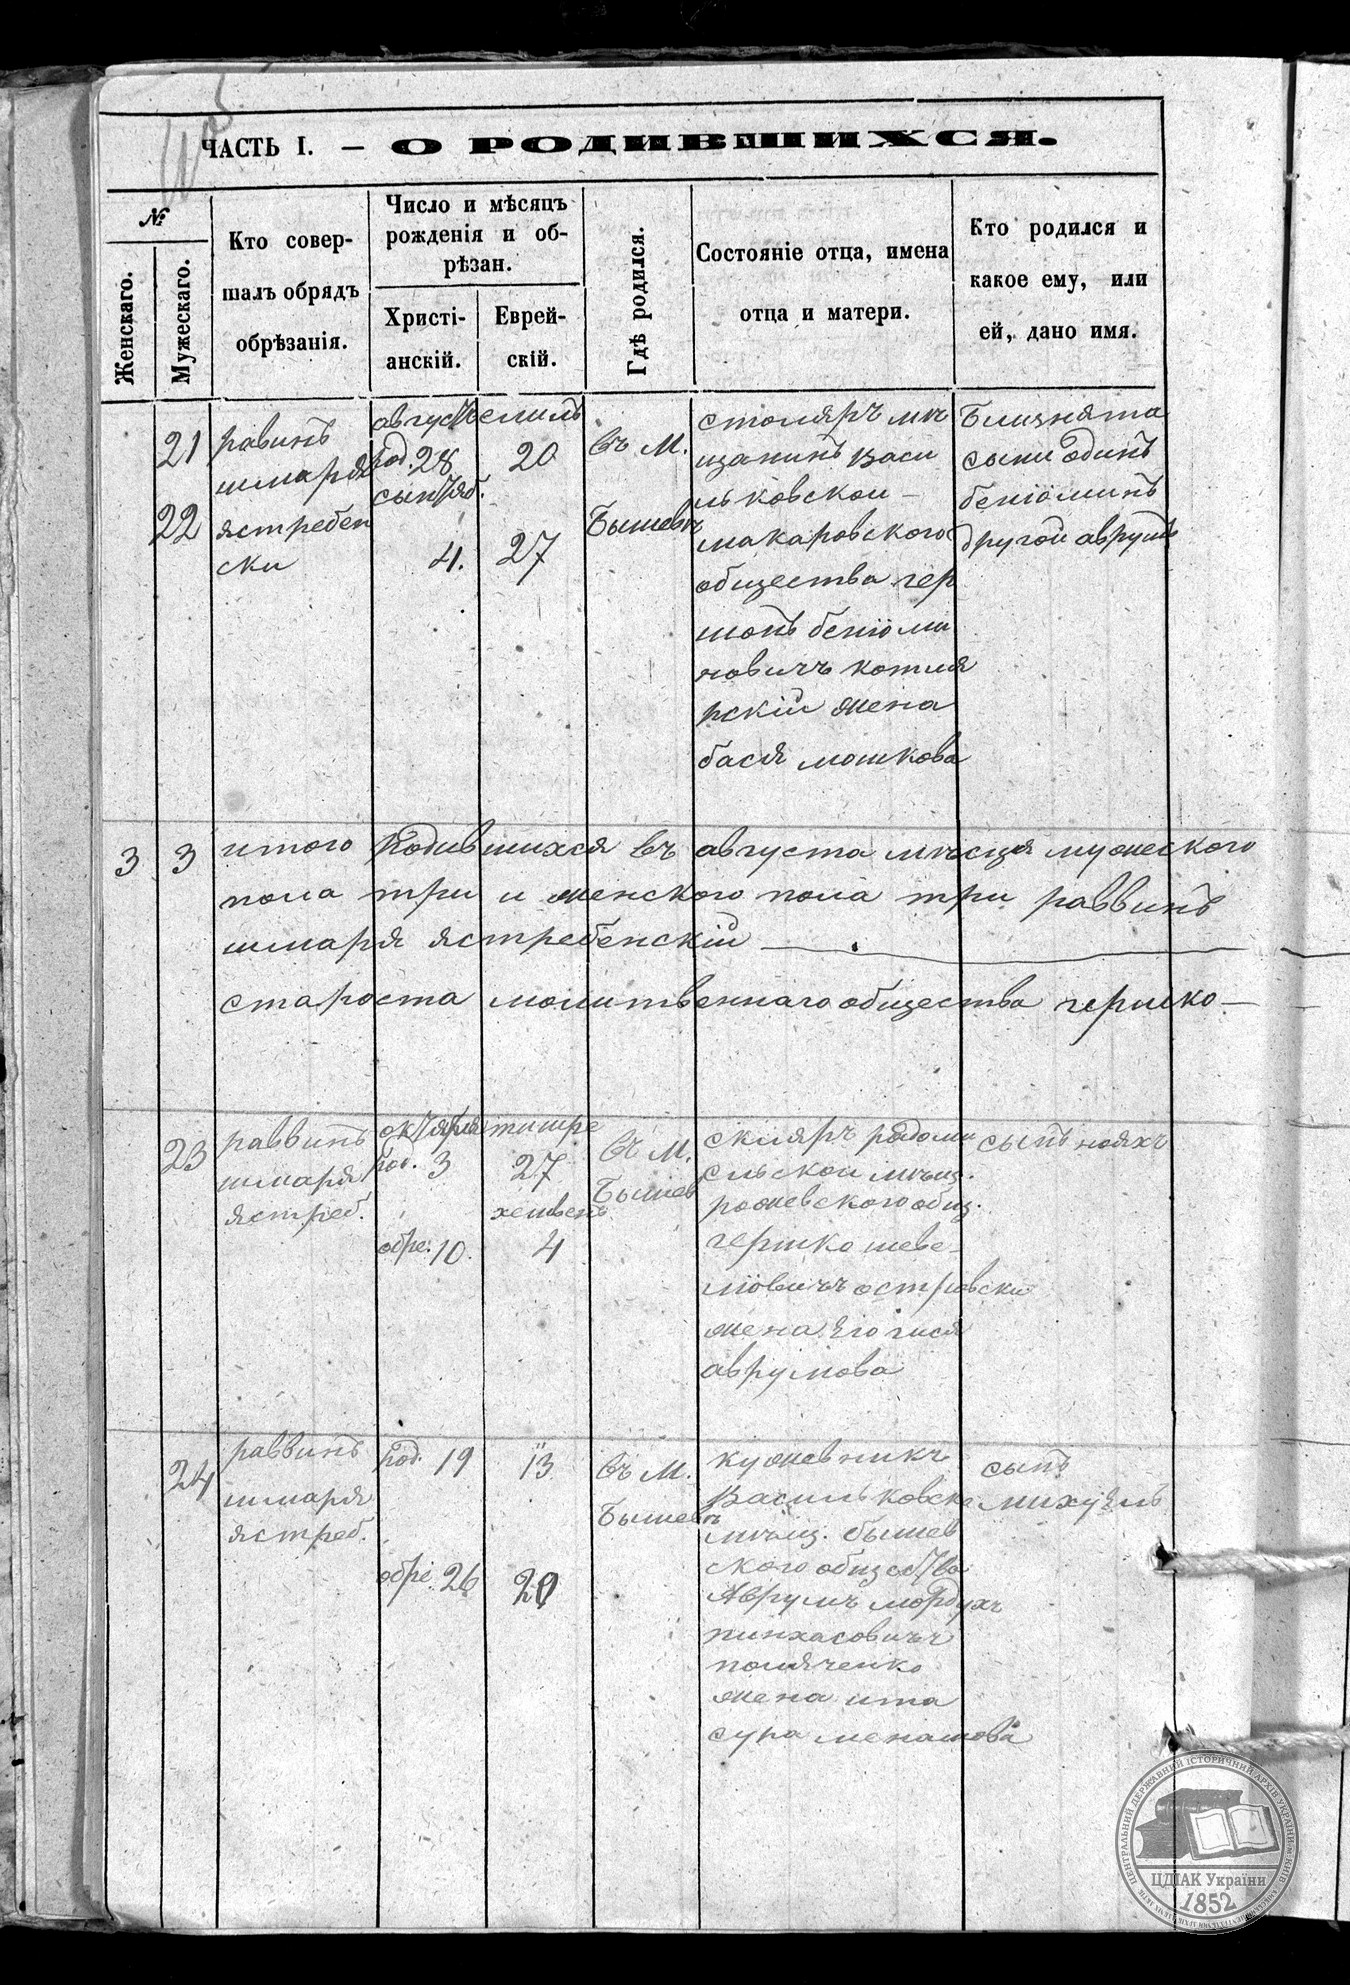 ЧАСТЬ I. — О РОДИВШИХСЯ.
№
Женскаго.
Мужескаго.
Кто совер-
шалъ обрядъ
обрѣзанія.
Число и мѣсяцъ
рожденія и об-
рѣзан.
Христі-
анскій.
Еврей-
скій.
Гдѣ родился.
Состояніе отца, имена
отца и матери.
Кто родился и
какое ему, или
ей, дано имя.
21
22
равинъ
шмаря
ястребен
ски
августъ
род. 28
сынтяб.
4.
елилъ
20
27
въ М.
Бышевъ
столяръ мѣ
щанинъ васи
льковскои
макаровского
общества гер
шонъ беніоми
новичъ котля
рскій жена
бася мошкова
Близнята
сыни одинъ
беніоминъ
другой аврумъ
3 3 итого родившихся въ августа мѣсяця мужеского
пола три и женского пола три раввинъ
шмаря ястребенскій
староста молитвеннаго общества гершко
23
раввинъ
шмаря
ястреб.
октября
род. 3
обре. 10
тишре
27
хешвенъ
4
въ М.
Бышев
скляръ радоми
сльскои мѣщ.
рожевского общ.
гершко шеве-
лїовичъ островски
жена его гися
аврумова
сынъ нояхъ
24
раввинъ
шмаря
ястреб.
род. 19
обре. 26
13
20
въ М.
Бышевъ
кушевникъ
Васильковске
мѣщ. бышев
ского общества
Аврумъ мордухъ
пинхасовичъ
поляченко
жена ита
сура менашова
сынъ
михуель
ЦЕНТРАЛЬНИЙ ДЕРЖАВНИЙ ІСТОРИЧНИЙ АРХІВ УКРАЇНИ, м. КИЇВ
ЦДІАК України
1852